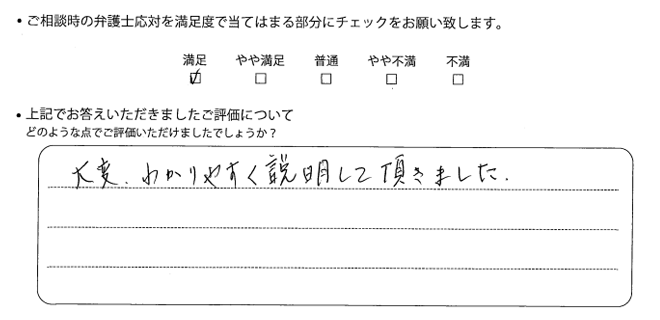 ・ご相談時の弁護士応対を満足度で当てはまる部分にチェックをお願い致します。
満足 やや満足 普通 やや不満 不満
☑ □ □ □ □
・上記でお答えいただきましたご評価について
どのような点でご評価いただけましたでしょうか？
大変、わかりやすく説明して頂きました。